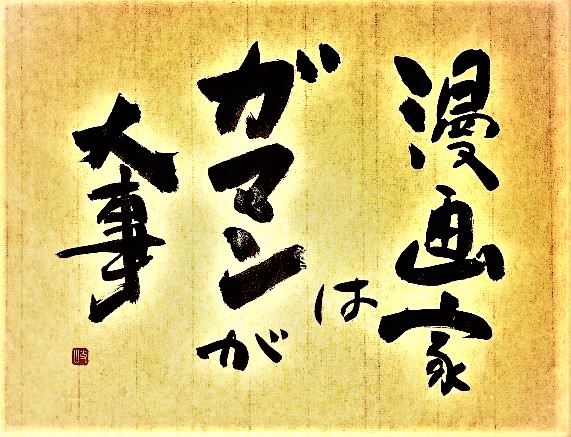 漫画家は
ガマンが
大事